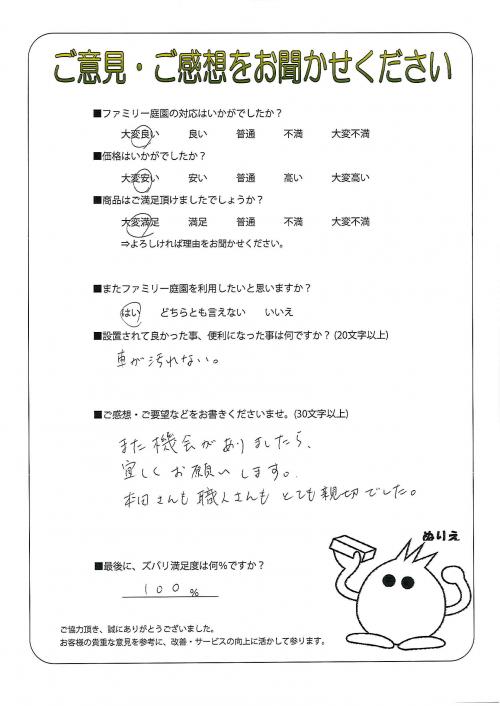 ご意見・ご感想をお聞かせください
■ファミリー庭園の対応はいかがでしたか？
大変良い 良い 普通 不満 大変不満
■価格はいかがでしたか？
大変安い 安い 普通 高い 大変高い
■商品はご満足頂けましたでしょうか？
大変満足 満足 普通 不満 大変不満
⇒よろしければ理由をお聞かせください。
■またファミリー庭園を利用したいと思いますか？
はい どちらとも言えない いいえ
■設置されて良かった事、便利になった事は何ですか？(20文字以上)
車が汚れない。
■ご感想・ご要望などをお書きくださいませ。(30文字以上)
また機会がありましたら、
宜しくお願いします。
本田さんも職人さんもとても親切でした。
ぬりえ
■最後に、ズバリ満足度は何%ですか？
100%
ご協力頂き、誠にありがとうございました。
お客様の貴重な意見を参考に、改善・サービスの向上に活かして参ります。